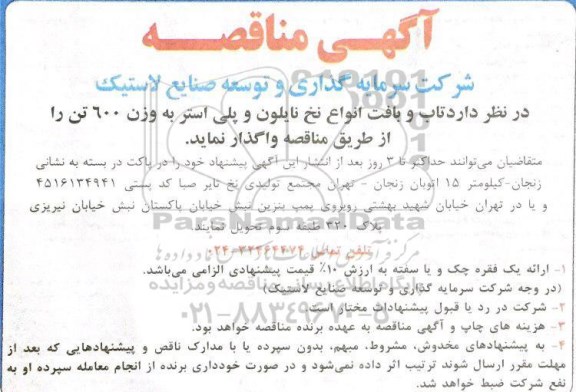 آگهی مناقصه
شرکت سرمایه گذاری و توسعه صنایع لاستیک
در نظر دارد تاب و بافت انواع نخ نایلون و پلی استر به وزن ۶۰۰ تن را
از طریق مناقصه واگذار نماید.
متقاضیان می‌توانند حداکثر تا ۳ روز بعد از انتشار این آگهی پیشنهاد خود را در پاکت در بسته به نشانی
زنجان-کیلومتر ۱۵ اتوبان زنجان - تهران مجتمع تولیدی نخ تایر صبا کد پستی ۴۵۱۶۱۳۴۹۴۱
و یا در تهران خیابان شهید بهشتی روبروی پمپ بنزین نبش خیابان پاکستان نبش خیابان نیریزی
پلاک ۳۳۰ طبقه سوم تحویل نمایند.
ParsNamadData
تلفن تماس
۱- ارائه یک فقره چک و یا سفته به ارزش ۱۰٪ قیمت پیشنهادی الزامی می‌باشد.
(در وجه شرکت سرمایه گذاری و توسعه صنایع لاستیک)
پایگاه اطلاع رسانی مناقصه و مزایده
۲- شرکت در رد یا قبول پیشنهادات مختار است.
۰۲۱-۸۸۳۴۹۶۷۰-۵
۳- هزینه های چاپ و آگهی مناقصه به عهده برنده مناقصه خواهد بود.
۴- به پیشنهادهای مخدوش، مشروط، مبهم، بدون سپرده یا با مدارک ناقص و پیشنهادهایی که بعد از
مهلت مقرر ارسال شوند ترتیب اثر داده نمی‌شود و در صورت خودداری برنده از انجام معامله سپرده او به
نفع شرکت ضبط خواهد شد.